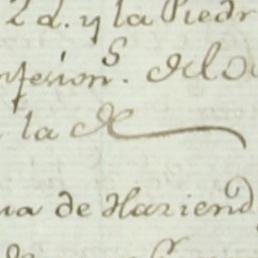 2 d. y la Piedr
nfesion.s del
la de
na de Haziend